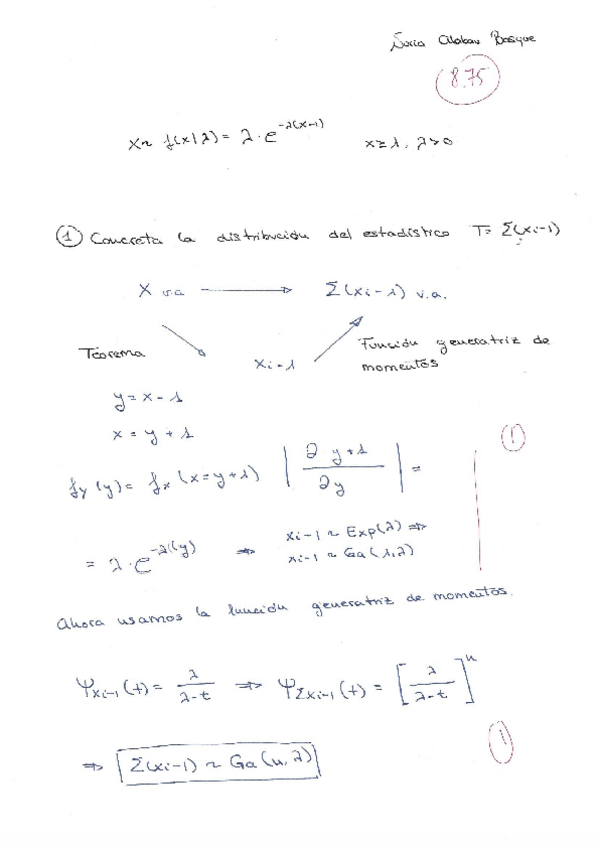 Nuria Alabau Bosque
8.75
X ~ f(x|λ) = λ · e^{-λ(x-1)}    x ≥ 1, λ > 0
① Concreta la distribución del estadístico T = Σ(xi-1)
X v.a → Σ(xi-1) v.a.
Teorema
xi-1
Función generatriz de
momentos
y = x - 1
x = y + 1
1
f_Y(y) = f_X(x = y+1) |∂ y+1 / ∂y| =
= λ · e^{-λ(y)} ⇒ xi-1 ~ Exp(λ) ⇒
xi-1 ~ Ga(1,λ)
Ahora usamos la función generatriz de momentos.
Ψ_{xi-1}(t) = λ/(λ-t) ⇒ Ψ_{Σxi-1}(t) = [λ/(λ-t)]^n
1
⇒ Σ(xi-1) ~ Ga(n,λ)